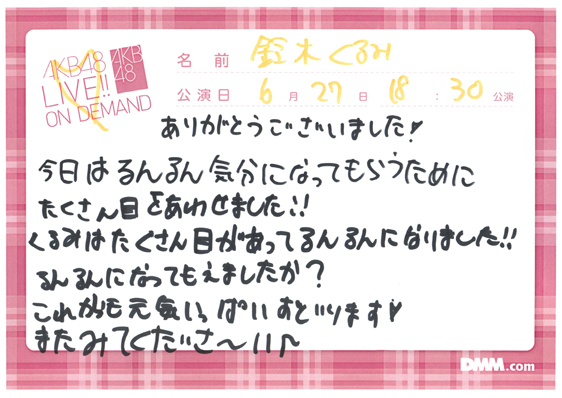 AKB48
LIVE!!
ON DEMAND
AKB
48
名前 鈴木くるみ
公演日 6月27日 18:30公演
ありがとうございました!
今日はるんるん気分になってもらうために
たくさん目をあわせました!!
くるみはたくさん目があってるんるんになりました!!
るんるんになってもえましたか?
これからも元気いっぱいおどります♥
またみてくださ〜いい♪
DMM.com